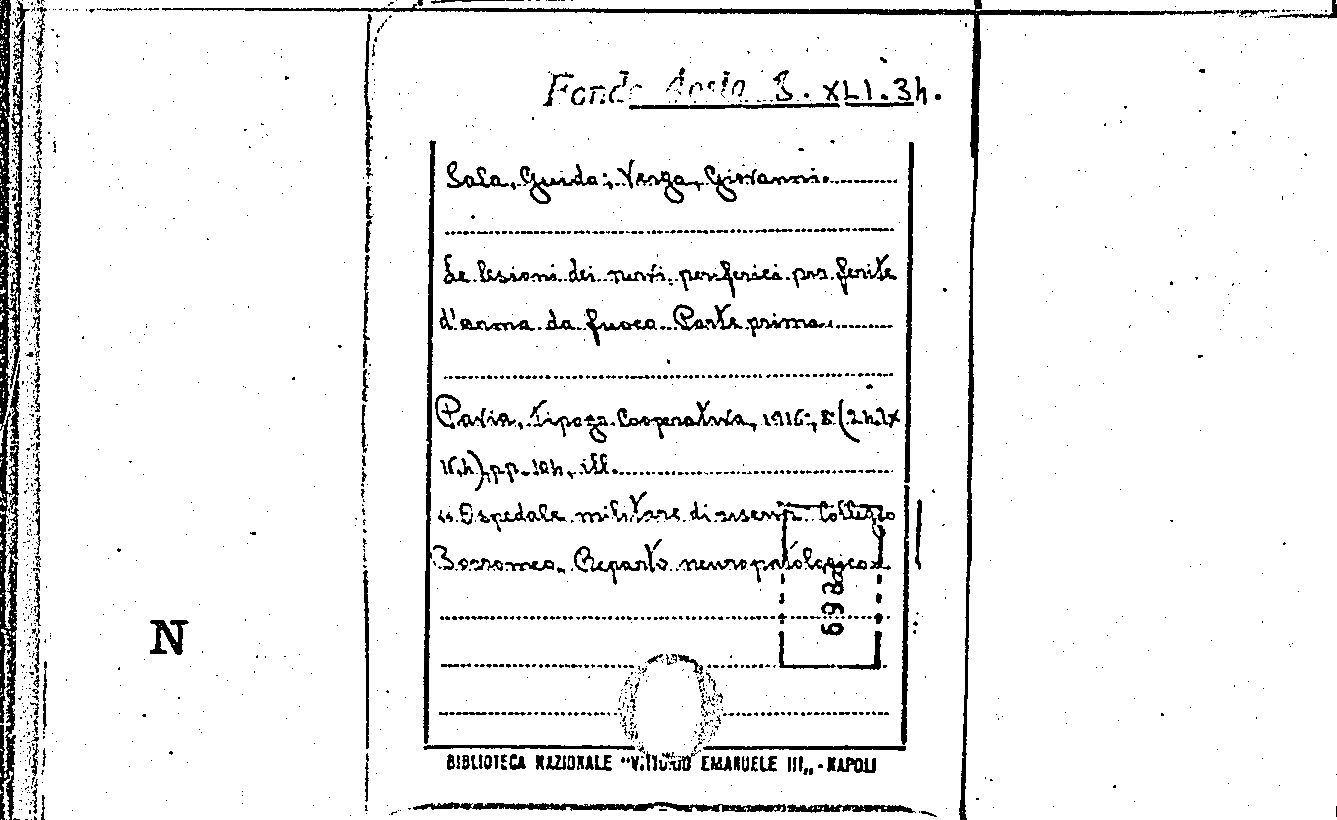 Fondo Aosta B. XLI. 34.
Sala, Guido; Verga, Giovanni.
Le lesioni dei nervi periferici per ferite
d'arma da fuoco. Parte prima.
Pavia, Tipogr. Cooperativa, 1916, 8° (24.2x
16,4), pp. 104, ill.
"Ospedale militare di riserva Collegio
Borromeo. Reparto neuropatologico".
N
BIBLIOTECA NAZIONALE "VITTORIO EMANUELE III„ - NAPOLI